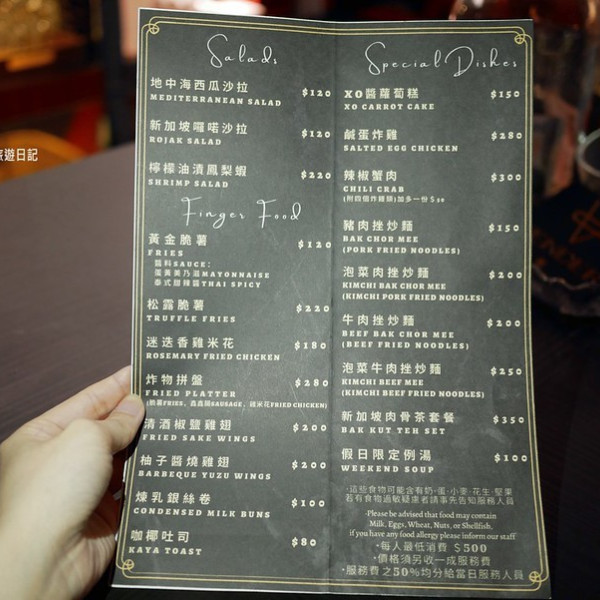 旅遊日記
Salads
地中海西瓜沙拉 $120
MEDITERRANEAN SALAD
新加坡囉喏沙拉 $120
ROJAK SALAD
檸檬油漬鳳梨蝦 $220
SHRIMP SALAD
Finger Food
黃金脆薯 $120
FRIES
醬料SAUCE:
蛋黃美乃滋MAYONNAISE
泰式甜辣醬THAI SPICY
松露脆薯 $220
TRUFFLE FRIES
迷迭香雞米花 $180
ROSEMARY FRIED CHICKEN
炸物拼盤 $280
FRIED PLATTER
(脆薯FRIES、鑫鑫腸SAUSAGE、雞米花FRIED CHICKEN)
清酒椒鹽雞翅 $200
FRIED SAKE WINGS
柚子醬燒雞翅 $200
BARBEQUE YUZU WINGS
煉乳銀絲卷 $100
CONDENSED MILK BUNS
咖椰吐司 $80
KAYA TOAST
Special Dishes
XO醬蘿蔔糕 $150
XO CARROT CAKE
鹹蛋炸雞 $280
SALTED EGG CHICKEN
辣椒蟹肉 $300
CHILI CRAB
(附四個炸饅頭)加多一份$50
豬肉挫炒麵 $150
BAK CHOR MEE
(PORK FRIED NOODLES)
泡菜肉挫炒麵 $200
KIMCHI BAK CHOR MEE
(KIMCHI PORK FRIED NOODLES)
牛肉挫炒麵 $200
BEEF BAK CHOR MEE
(BEEF FRIED NOODLES)
泡菜牛肉挫炒麵 $250
KIMCHI BEEF MEE
(KIMCHI BEEF FRIED NOODLES)
新加坡肉骨茶套餐 $350
BAK KUT TEH SET
假日限定例湯 $100
WEEKEND SOUP
·這些食物可能含有奶·蛋·小麥·花生·堅果
若有食物過敏疑慮者請事先告知服務人員
·Please be advised that food may contain
Milk, Eggs, Wheat, Nuts, or Shellfish,
if you have any food allergy please inform our staff
·每人最低消費 $500
·價格須另收一成服務費
·服務費之50%均分給當日服務人員